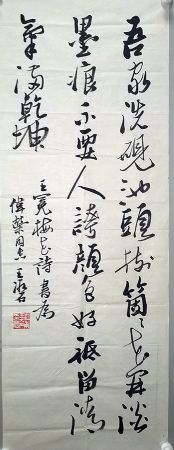 吾家洗硯池頭樹箇〻花開淡
墨痕不要人誇顏色好祇留清
氣滿乾坤
王冕梅花詩書為
同志王石